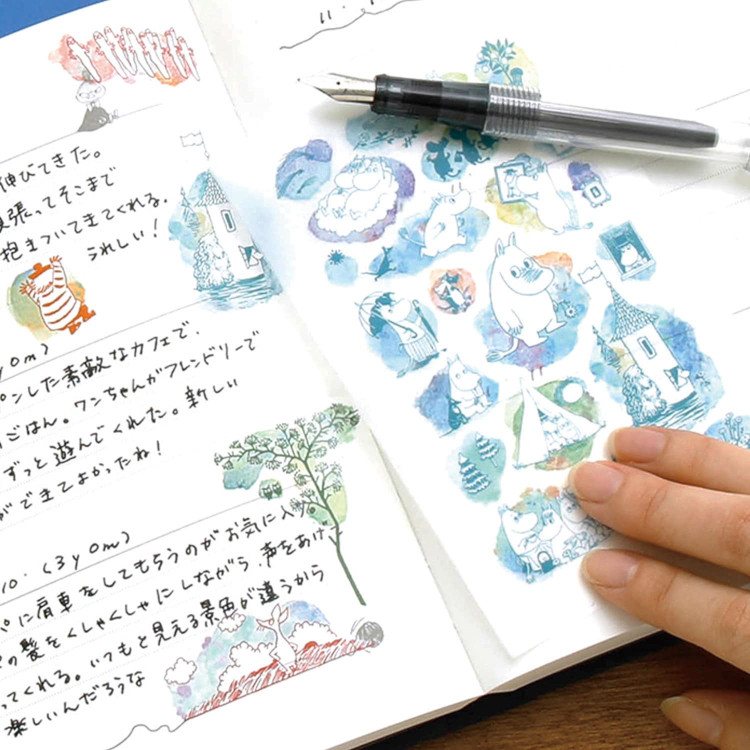 11.
伸びてきた。
張ってそこまで
抱きついてきてくれる.
うれしい！
yom)
ンした素敵なカフェで、
ごはん。ワンちゃんがフレンドリーで
ずっと遊んでくれた。新しい
ができてよかったね！
10. (3yom)
に肩車をしてもらうのがお気に入り。
の髪をくしゃくしゃにしながら、声をあげ
ってくれる。いつもと見える景色が違うから
楽しいんだろうな